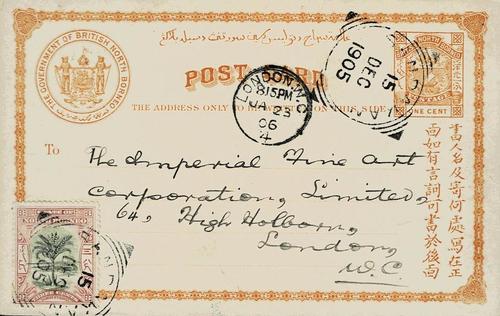 THE GOVERNMENT OF BRITISH NORTH BORNEO
POST CARD
THE ADDRESS ONLY TO BE WRITTEN ON THIS SIDE
LONDON.W.C
8.15PM
JA 23
06
4
15
DEC
1905
POSTAGE
ONE CENT
To
The Imperial Fine Art
Corporation, Limited,
64, High Holborn,
London,
W.C.
書人名及寄何處寫在正
面如有言詞可書於後面
15